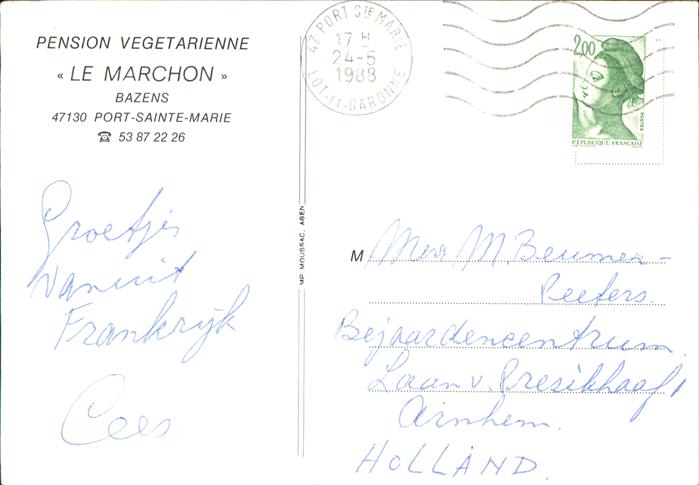 PENSION VEGETARIENNE
« LE MARCHON »
BAZENS
47130 PORT-SAINTE-MARIE
☎ 53 87 22 26
Groetjes
vanuit
Frankrijk
Cees
MP. MOUSSAC, AGEN
47 PORT STE MARIE
17 H
24-5
1988
LOT-ET-GARONNE
2,00
POSTES
REPUBLIQUE FRANÇAISE
M Mevr M. Beumer-
Peeters.
Bejaardencentrum
Laan v. Presikhaaf 1
Arnhem.
HOLLAND.